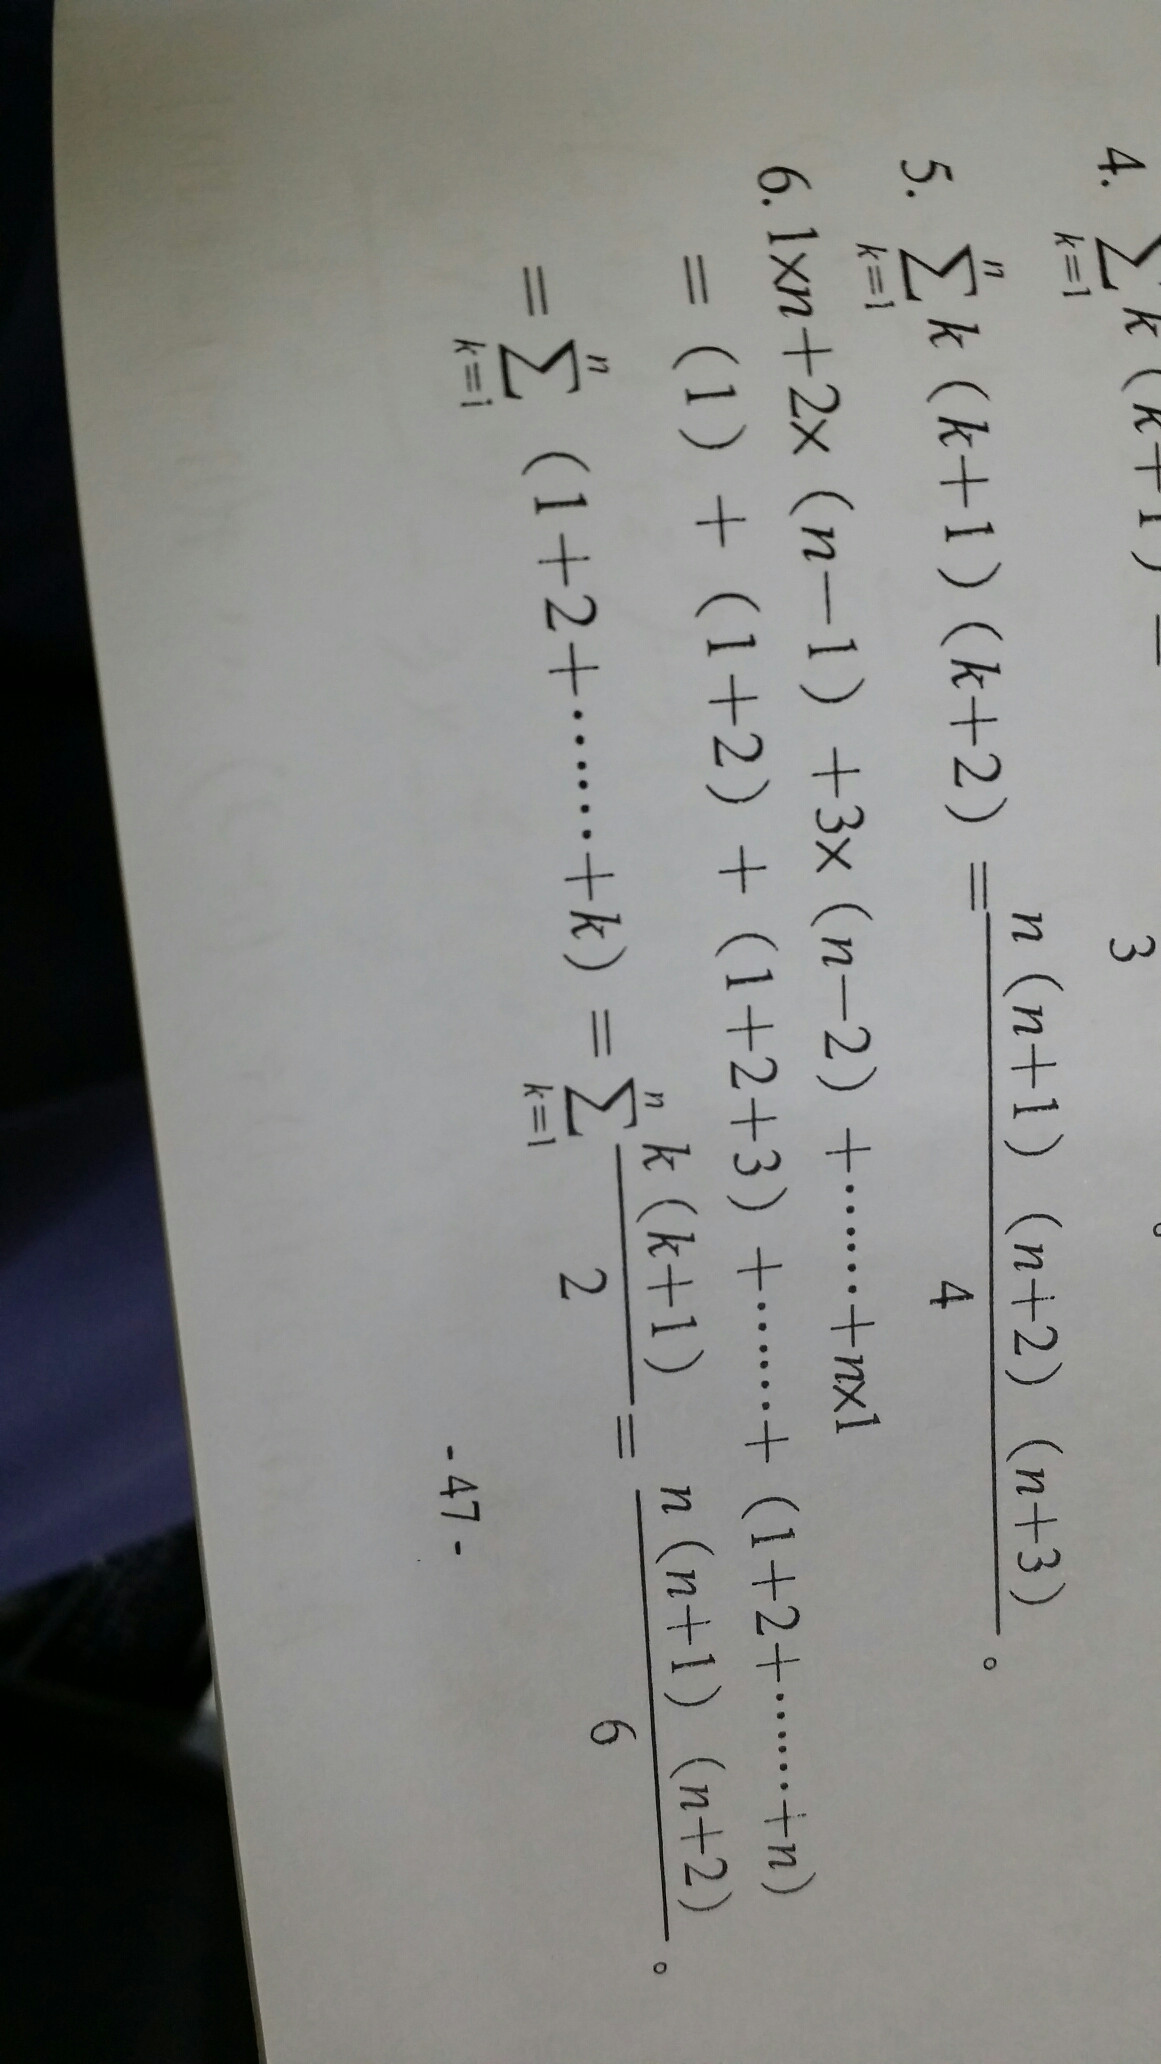 4. ∑k=1 k(k+1)= 3
5. ∑k=1^n k(k+1)(k+2)= n(n+1)(n+2)(n+3)/4。
6.1×n+2×(n−1)+3×(n−2)+……+n×1
=(1)+(1+2)+(1+2+3)+……+(1+2+……+n)
=∑k=1^n (1+2+……+k)=∑k=1^n k(k+1)/2=n(n+1)(n+2)/6。
-47-